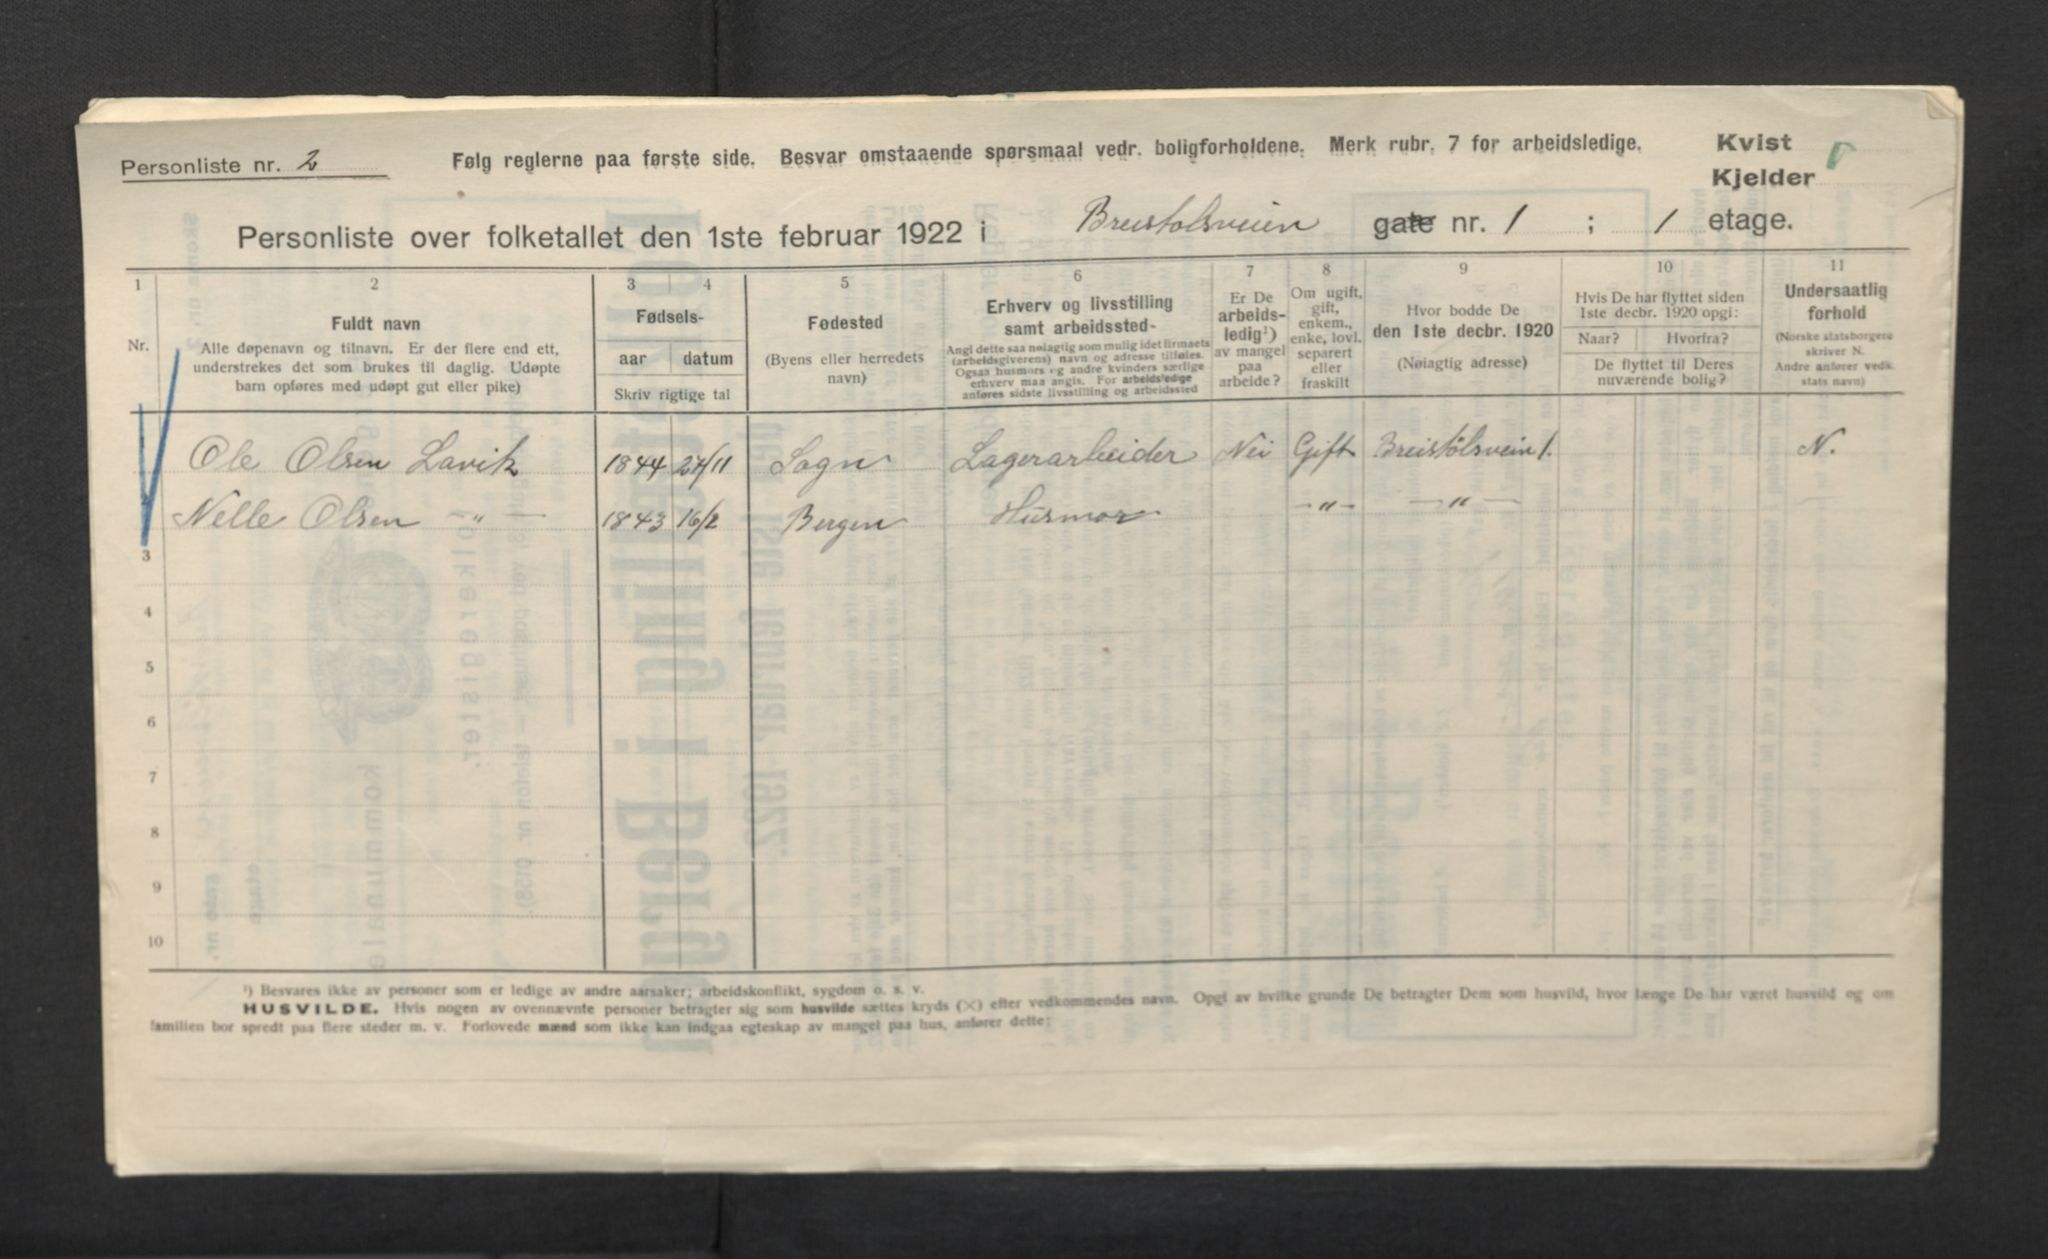 Personliste nr. 2
Følg reglerne paa første side. Besvar omstaaende spørsmaal vedr. boligforholdene. Merk rubr. 7 for arbeidsledige.
Kvist
Kjelder
Personliste over folketallet den 1ste februar 1922 i Breistølsveien gate nr. 1 ; 1 etage.
1 2 3 4 5 6 7 8 9 10 11
Nr.
Fuldt navn
Alle døpenavn og tilnavn. Er der flere end ett,
understrekes det som brukes til daglig. Udøpte
barn opføres med udøpt gut eller pike)
Fødsels-
aar datum
Skriv rigtige tal
Fødested
(Byens eller herredets
navn)
Erhverv og livsstilling
samt arbeidssted-
Angi dette saa nøiagtig som mulig idet firmaets
(arbeidsgiverens) navn og adresse tilføies.
Ogsaa husmors og andre kvinders særlige
erhverv maa angis. For arbeidsledige
anføres sidste livsstilling og arbeidssted
Er De
arbeids-
ledig¹)
av mangel
paa
arbeide?
Om ugift,
gift,
enkem.,
enke, lovl.
separert
eller
fraskilt
Hvor bodde De
den 1ste decbr. 1920
(Nøiagtig adresse)
Hvis De har flyttet siden
1ste decbr. 1920 opgi:
Naar? Hvorfra?
De flyttet til Deres
nuværende bolig?
Undersaatlig
forhold
(Norske statsborgere
skriver N.
Andre anfører vedk.
stats navn)
Ole Olsen Lavik 1844 27/11 Sogn Lagerarbeider Nei Gift Breistølsvein 1. N.
2 Nelle Olsen —„— 1843 16/2 Bergen Husmor —„— —„—
3
4
5
6
7
8
9
10
¹) Besvares ikke av personer som er ledige av andre aarsaker; arbeidskonflikt, sygdom o. s. v.
HUSVILDE. Hvis nogen av ovennævnte personer betragter sig som husvilde sættes kryds (×) efter vedkommendes navn. Opgi av hvilke grunde De betragter Dem som husvild, hvor længe De har været husvild og om
familien bor spredt paa flere steder m. v. Forlovede mænd som ikke kan indgaa egteskap av mangel paa hus, anfører dette: